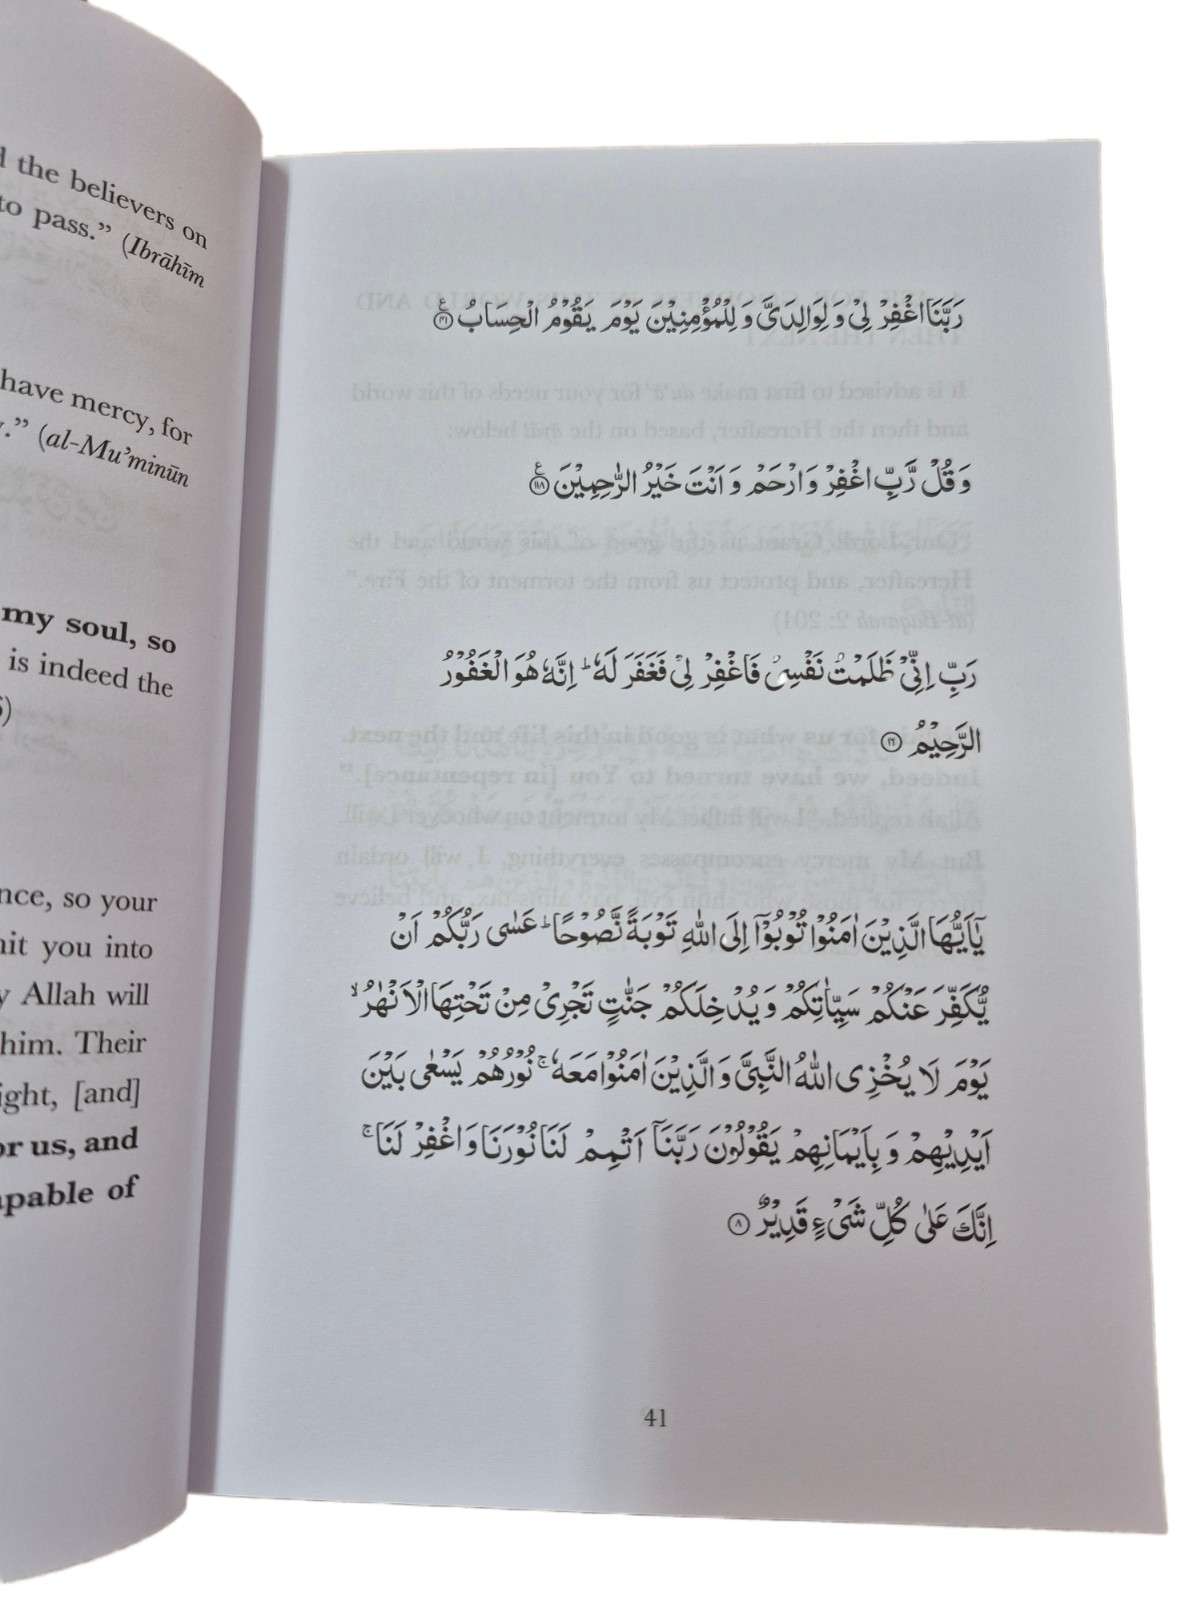 d the believers on
to pass.” (Ibrāhīm
have mercy, for
.” (al-Mu’minūn
my soul, so
is indeed the
)
nce, so your
mit you into
y Allah will
him. Their
ight, [and]
or us, and
apable of
رَبَّنَا اغْفِرْ لِیْ وَ لِوَالِدَیَّ وَ لِلْمُؤْمِنِیْنَ یَوْمَ یَقُوْمُ الْحِسَابُ ﴿۴۱﴾
وَ قُلْ رَّبِّ اغْفِرْ وَ ارْحَمْ وَ اَنْتَ خَیْرُ الرّٰحِمِیْنَ ﴿۱۱۸﴾
رَبِّ اِنِّیْ ظَلَمْتُ نَفْسِیْ فَاغْفِرْ لِیْ فَغَفَرَ لَهٗ ؕ اِنَّهٗ هُوَ الْغَفُوْرُ
الرَّحِیْمُ ﴿۱۶﴾
یٰۤاَیُّهَا الَّذِیْنَ اٰمَنُوْا تُوْبُوْۤا اِلَی اللّٰهِ تَوْبَةً نَّصُوْحًا ؕ عَسٰی رَبُّكُمْ اَنْ
یُّكَفِّرَ عَنْكُمْ سَیِّاٰتِكُمْ وَ یُدْخِلَكُمْ جَنّٰتٍ تَجْرِیْ مِنْ تَحْتِهَا الْاَنْهٰرُ ۙ
یَوْمَ لَا یُخْزِی اللّٰهُ النَّبِیَّ وَ الَّذِیْنَ اٰمَنُوْا مَعَهٗ ۚ نُوْرُهُمْ یَسْعٰی بَیْنَ
اَیْدِیْهِمْ وَ بِاَیْمَانِهِمْ یَقُوْلُوْنَ رَبَّنَاۤ اَتْمِمْ لَنَا نُوْرَنَا وَ اغْفِرْ لَنَا ۚ
اِنَّكَ عَلٰی كُلِّ شَیْءٍ قَدِیْرٌ ﴿۸﴾
41